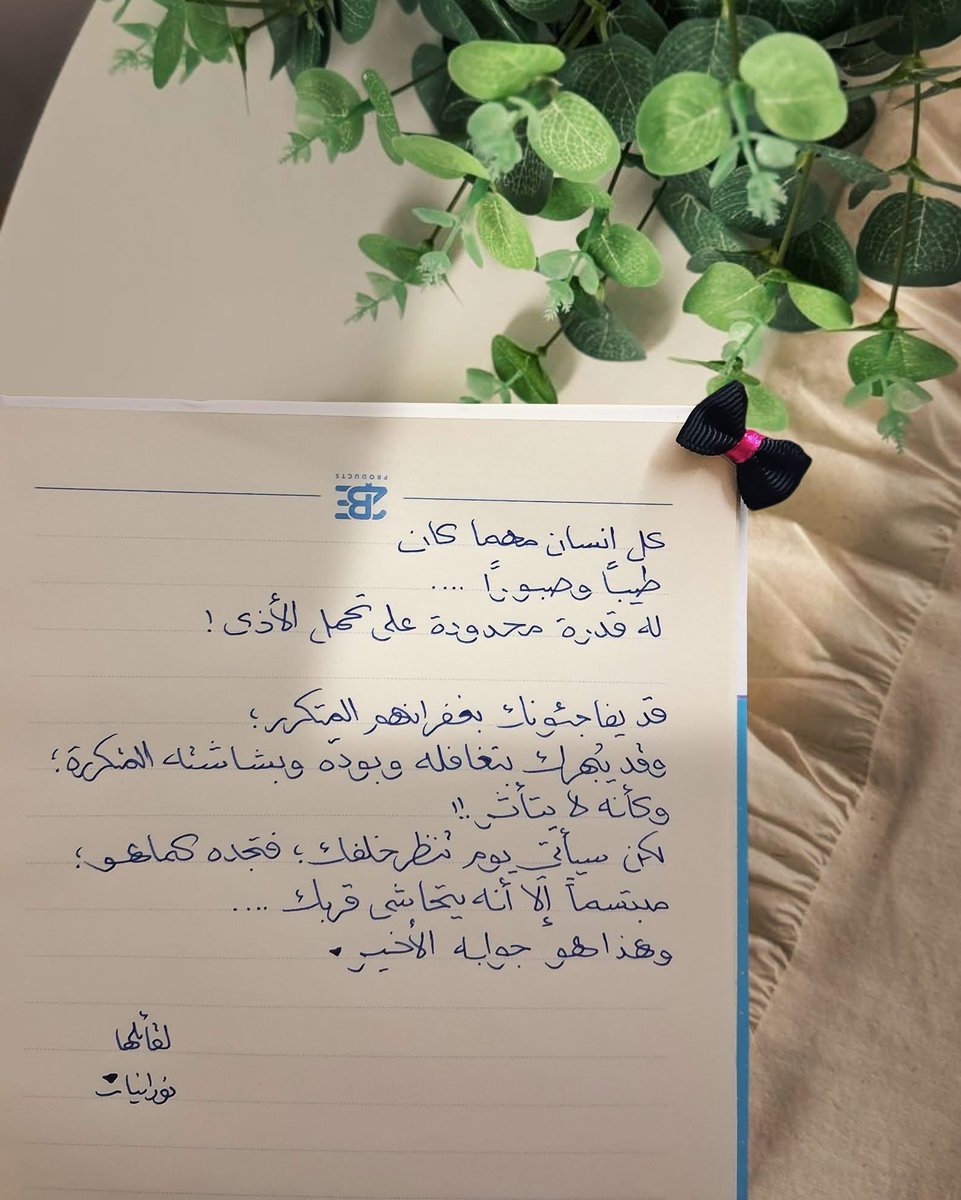 ZBE
PRODUCTS
كل انسان مهما كان
طيباً وصبوراً ....
له قدرة محدودة على تحمل الأذى !
قد يفاجئونك بغفرانهم المتكرر ؛
وقد يُبهرك بتغافله وبوده وبشاشته المتكررة ؛
وكأنه لا يتأثر !!
لكن سيأتي يوم تنظر خلفك ؛ فتجده كماهو ؛
مبتسماً إلا أنه يتحاشى قربك ....
وهذا هو جوابه الأخير .
لقائلها
نورانيات